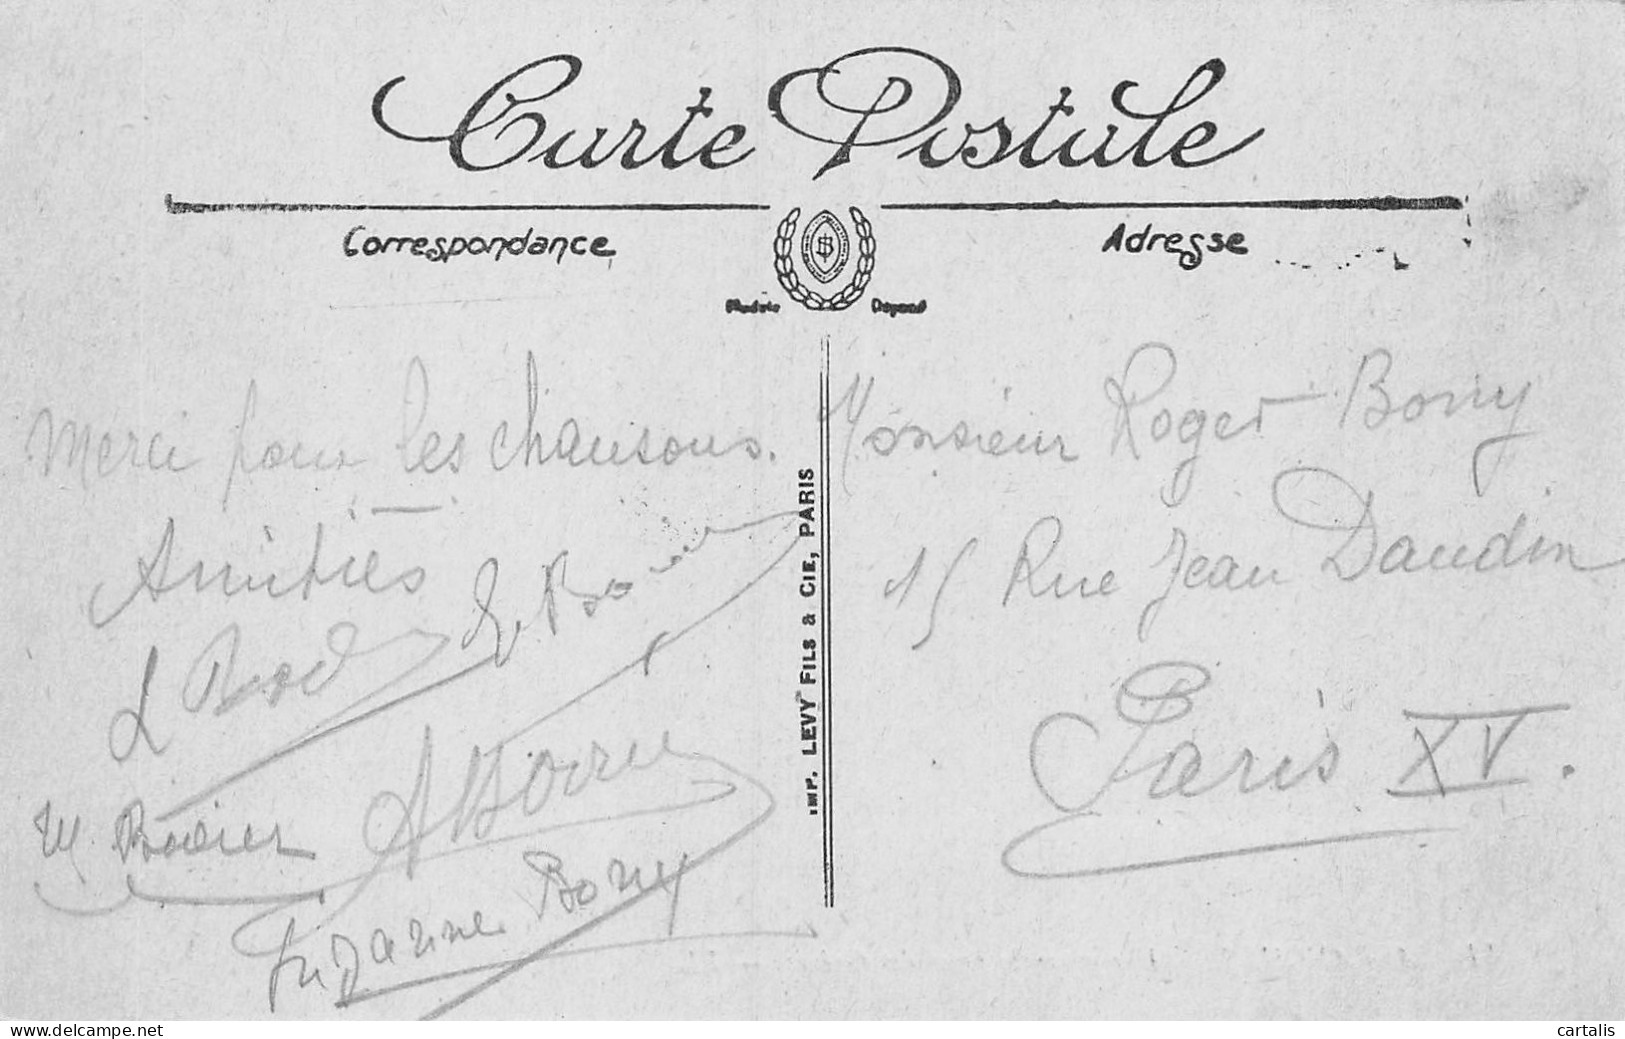 Carte Postale
Correspondance
Adresse
Modèle Déposé
Merci pour les chansons.
Amitiés
Suzanne Bony
IMP. LEVY FILS & CIE, PARIS
Monsieur Roger Bony
15 Rue Jean Daudin
Paris XV.
www.delcampe.net
cartalis